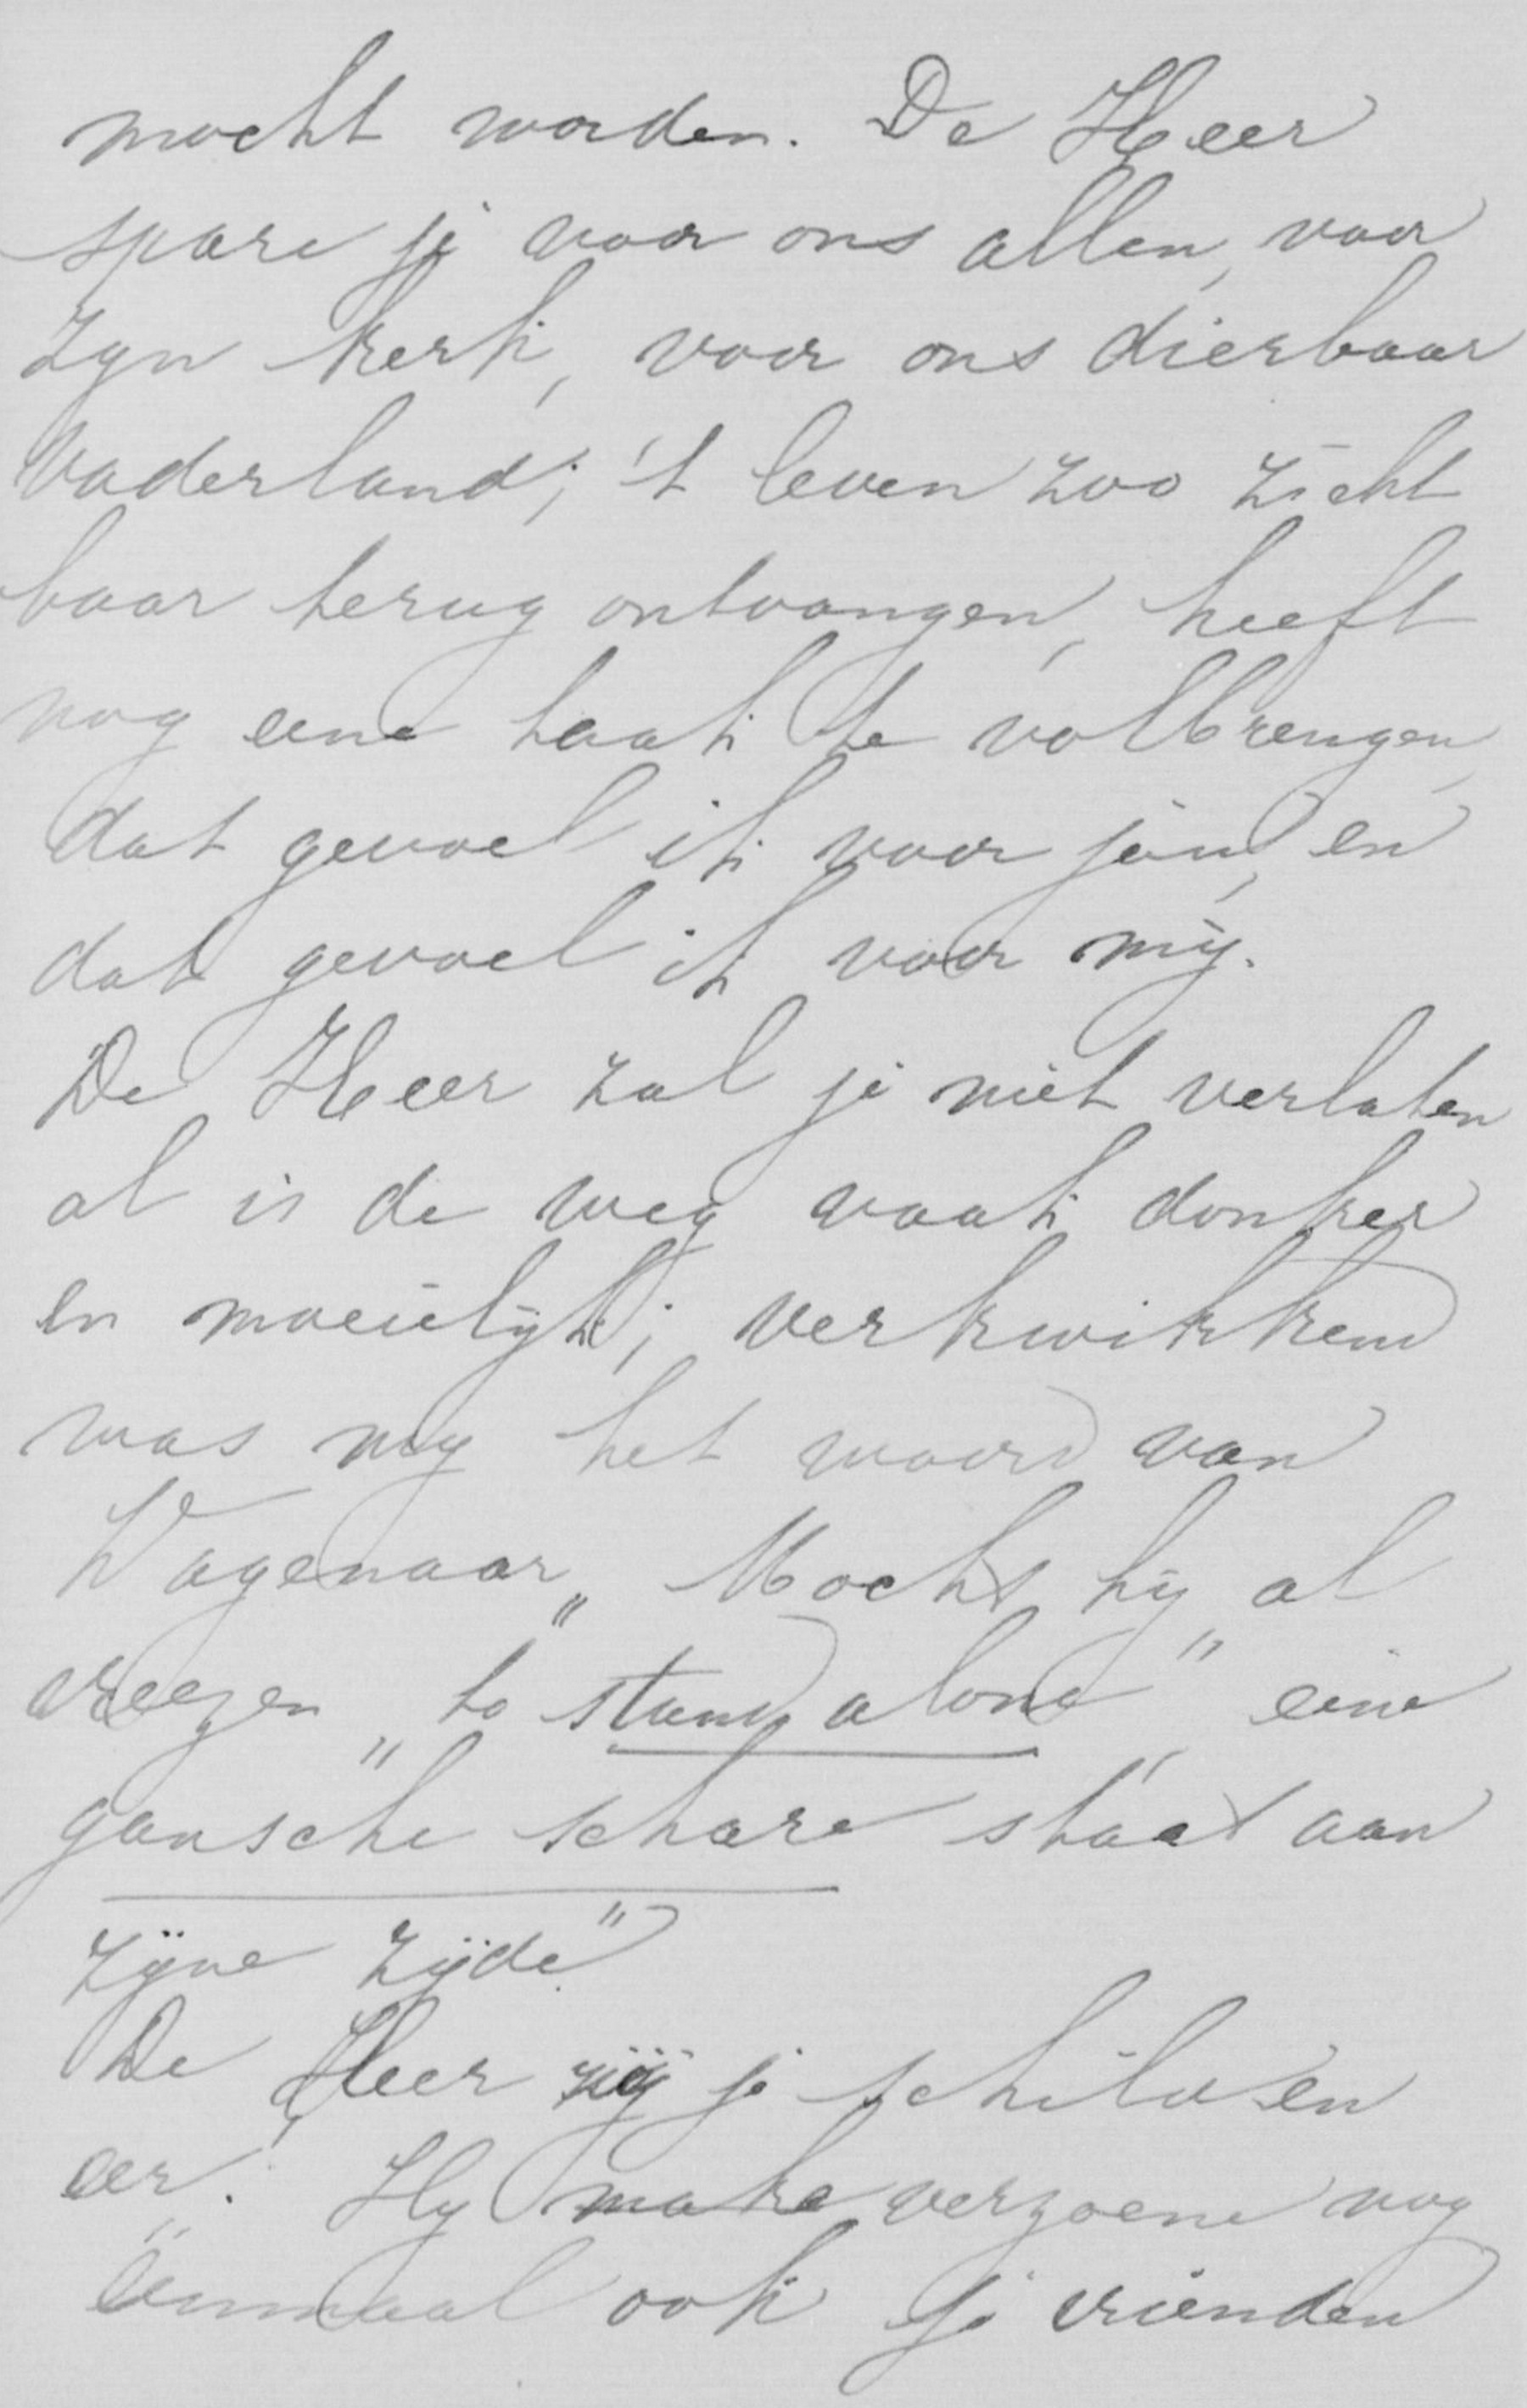 mocht worden. De Heer
spare je voor ons allen, voor
Zyn kerk, voor ons dierbaar
Vaderland; 't leven zoo zicht
baar terug ontvangen, heeft
nog eene taak te volbrengen,
dat gevoel ik voor jou, en
dat gevoel ik voor mij.
De Heer zal je niet verlaten
al is de weg vaak donker
en moeielijk; verkwikkend
was my het woord van
Wagenaar „Mocht hij al
vreezen „to stand alone", eene
gansche schare staat aan
zijne zijde"
De Heer zij je schild en
eer. Hy make verzoene nog
éénmaal ook je vrienden